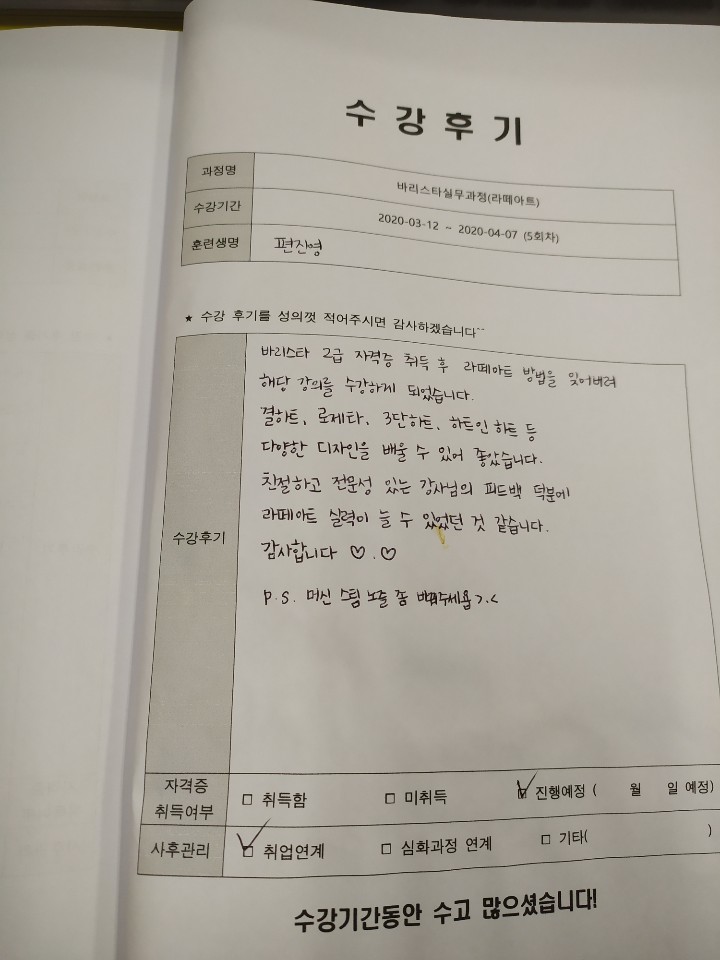 수강후기
과정명 바리스타실무과정(라떼아트)
수강기간 2020-03-12 ~ 2020-04-07 (5회차)
훈련생명 편진영
★ 수강 후기를 성의껏 적어주시면 감사하겠습니다~~
바리스타 2급 자격증 취득 후 라떼아트 방법을 잊어버려
해당 강의를 수강하게 되었습니다.
결하트, 로제타, 3단하트, 하트인하트 등
다양한 디자인을 배울 수 있어 좋았습니다.
친절하고 전문성 있는 강사님의 피드백 덕분에
라떼아트 실력이 늘 수 있었던 것 같습니다.
수강후기
감사합니다 ♡.♡
P.S. 머신 스팀 노즐 좀 >.<
자격증 취득여부 □ 취득함 □ 미취득 ☑ 진행예정 ( 월 일 예정)
사후관리 ☑ 취업연계 □ 심화과정 연계 □ 기타( )
수강기간동안 수고 많으셨습니다!